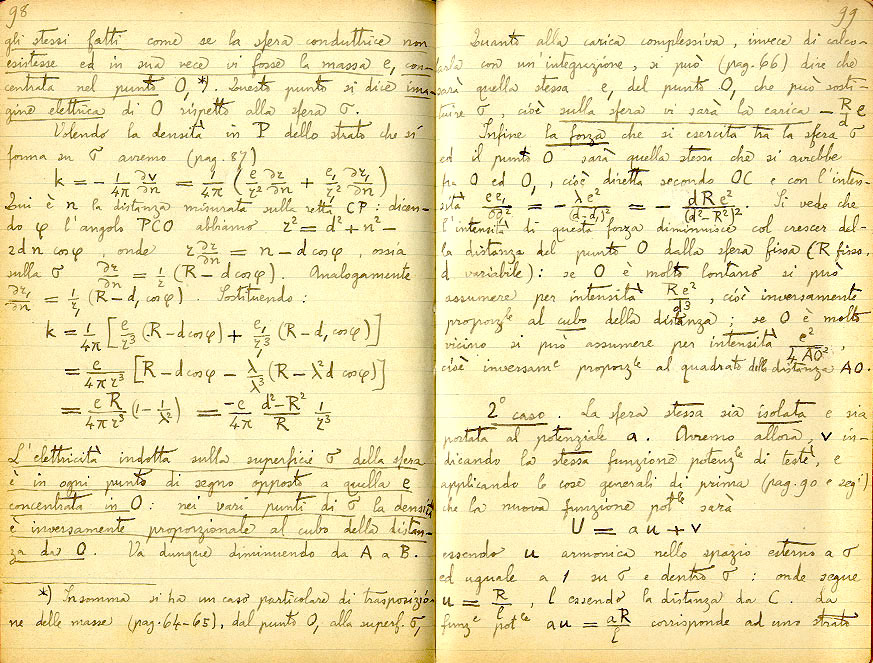 98
gli stessi fatti come se la sfera conduttrice non
esistesse ed in sua vece vi fosse la massa e, con-
centrata nel punto O₁*). Questo punto si dice ima-
gine elettrica di O rispetto alla sfera σ.
Volendo la densità in P dello strato che si
forma su σ avremo (pag. 87)
k = - 1/4π ∂v/∂n = 1/4π (e/r² ∂r/∂n + e₁/r₁² ∂r₁/∂n)
Qui è n la distanza misurata sulla retta CP: dicen-
do φ l'angolo PCO abbiamo r² = d² + n² -
2dn cosφ, onde r ∂r/∂n = n - d cosφ, ossia
sulla σ ∂r/∂n = 1/r (R - d cosφ). Analogamente
∂r₁/∂n = 1/r₁ (R - d₁ cosφ). Sostituendo:
k = 1/4π [e/r³ (R - d cosφ) + e₁/r₁³ (R - d₁ cosφ)]
= e/4πr³ [R - d cosφ - λ/λ³ (R - λ² d cosφ)]
= eR/4πr³ (1 - 1/λ²) = -e/4π d²-R²/R 1/r³
L'elettricità indotta sulla superficie σ della sfera
è in ogni punto di segno opposto a quella e
concentrata in O: nei vari punti di σ la densità
è inversamente proporzionale al cubo della distan-
za da O. Va dunque diminuendo da A a B.
*) Insomma si ha un caso particolare di trasposizio-
ne delle masse (pag. 64-65), dal punto O₁ alla superf. σ,
99
Quanto alla carica complessiva, invece di calco-
larla con un'integrazione, si può (pag. 66) dire che
sarà quella stessa e₁ del punto O₁ che può sosti-
tuire σ, cioè sulla sfera vi sarà la carica - R/d e
Infine la forza che si esercita tra la sfera σ
ed il punto O sarà quella stessa che si avrebbe
fra O ed O₁, cioè diretta secondo OC e con l'inten-
sità ee₁/OO₁² = - λe²/(d-d₁)² = - dRe²/(d²-R²)². Si vede che
l'intensità di questa forza diminuisce col crescer del-
la distanza del punto O dalla sfera fissa (R fisso,
d variabile): se O è molto lontano si può
assumere per intensità Re²/d³, cioè inversamente
proporzle al cubo della distanza; se O è molto
vicino si può assumere per intensità e²/4 AO²,
cioè inversame proporzle al quadrato della distanza AO.
2° caso. La sfera stessa sia isolata e sia
portata al potenziale a. Avremo allora, v in-
dicando la stessa funzione potenzle di testè, e
applicando le cose generali di prima (pag. 90 e segi)
che la nuova funzione potle sarà
U = au + v
essendo u armonica nello spazio esterno a σ
ed uguale a 1 su σ e dentro σ: onde segue
u = R/l, l essendo la distanza da C. La
funze potle au = aR/l corrisponde ad uno strato